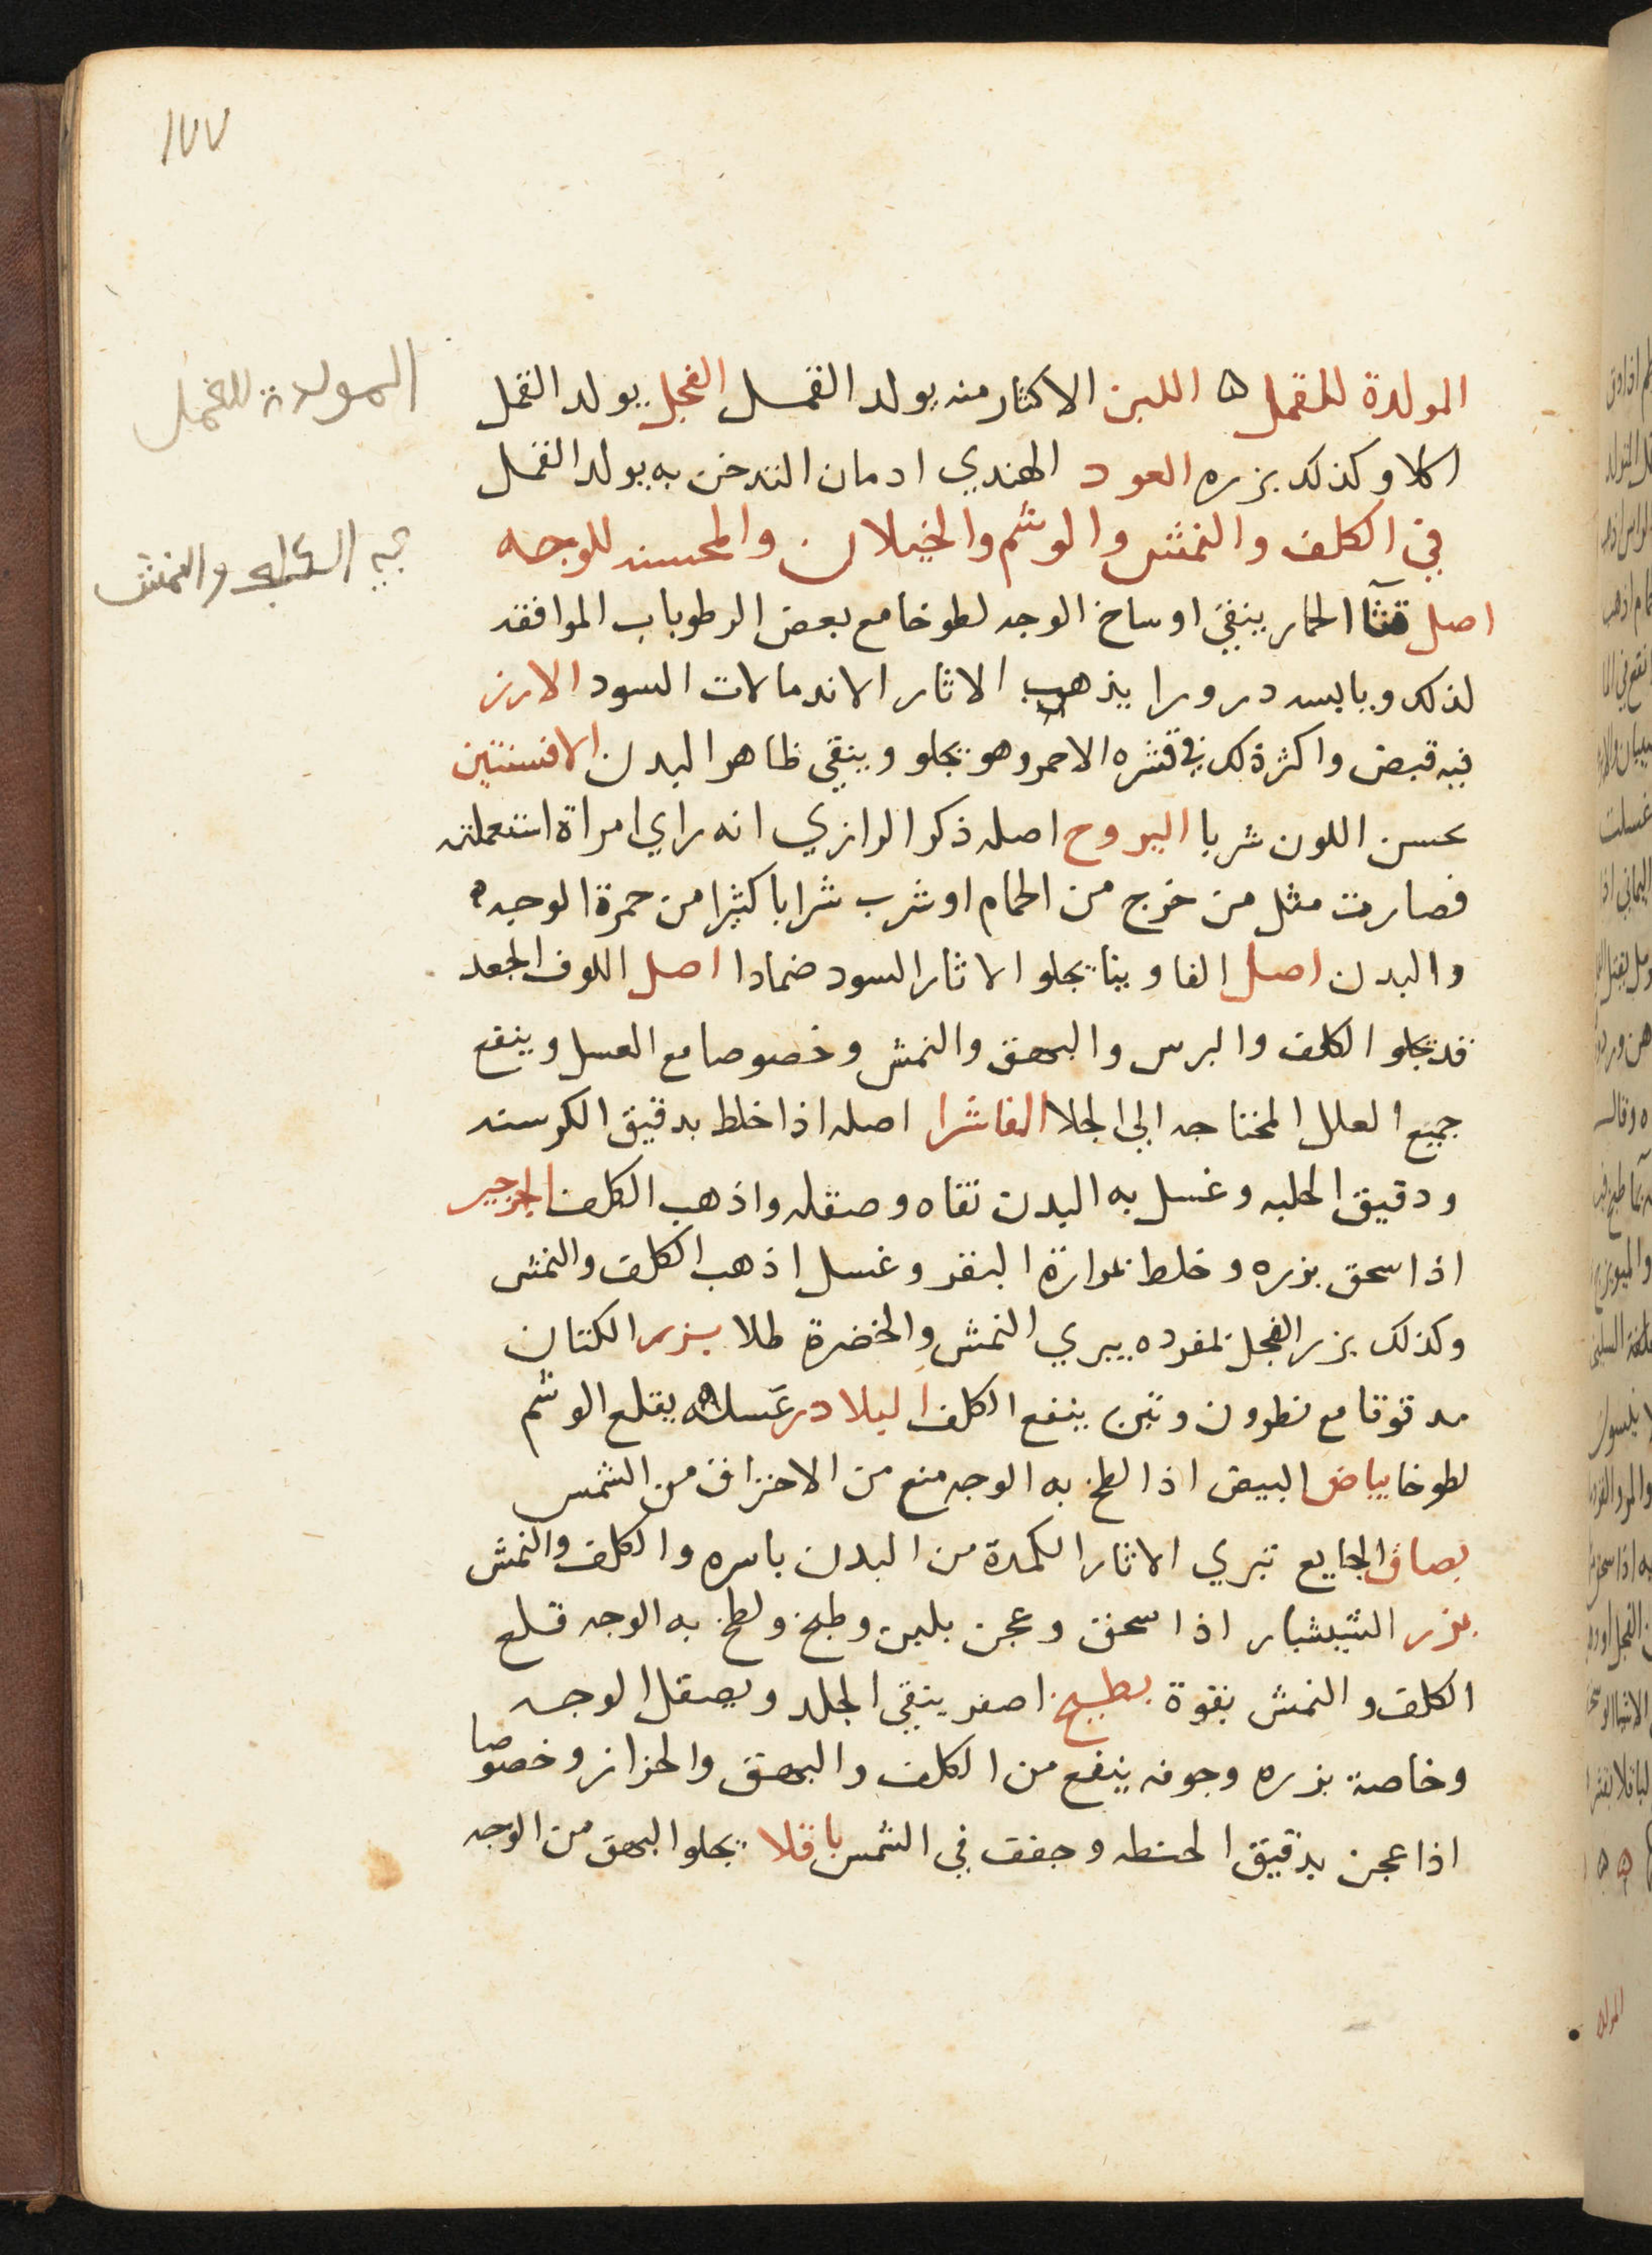 ١٧٧
المولدة للقمل ه اللبن الاكثار منه يولد القمل الفجل يولد القمل
اكلا وكذلك بزره العود الهندي ادمان التدخن به يولد القمل
في الكلف والنمش والوشم والخيلان والمحسنه للوجه
اصل قثآ الحمار ينقي اوساخ الوجه لطوخا مع بعض الرطوبات الموافقه
لذلك ويابسه درورا يذهب الاثار الاندمالات السود الارز
فيه قبض واكثر ذلك في قشره الاحمر وهو يجلو وينقي ظاهر البدن الافسنتين
يحسن اللون شربا اليبروح اصله ذكر الرازي انه راي امراة استعملته
فصارت مثل من خرج من الحمام او شرب شرابا كثيرا من حمرة الوجه ه
والبدن اصل الفاوينا يجلو الاثار السود ضمادا اصل اللوف الجعد
قد يجلو الكلف والبرس والبهق والنمش وخصوصا مع العسل وينفع
جميع العلل المحتاجه الى الجلا الفاشرا اصله اذا خلط بدقيق الكرسنه
ودقيق الحلبه وغسل به البدن نقاه وصقله واذهب الكلف الجرجير
اذا سحق بزره وخلط بمرارة البقر وغسل اذهب الكلف والنمش
وكذلك بزر الفجل بمفرده يبري النمش والخضرة طلا بزر الكتان
مدقوقا مع نطرون وتين ينفع الكلف البلادر عسله يقلع الوشم
لطوخا بياض البيض اذا لطخ به الوجه منع من الاحتراق من الشمس
بصاق الجايع تبري الاثار الكمدة من البدن باسره والكلف والنمش
بزر الشبشبار اذا سحق وعجن بلبن وطبخ ولطخ به الوجه قلع
الكلف والنمش بقوة بطيخ اصفر ينقي الجلد ويصقل الوجه
وخاصة بزره وجوفه ينفع من الكلف والبهق والحزاز وخصوصا
اذا عجن بدقيق الحنطه وجفف في الشمس باقلا يجلو البهق من الوجه
المولدة للقمل
في الكلف والنمش